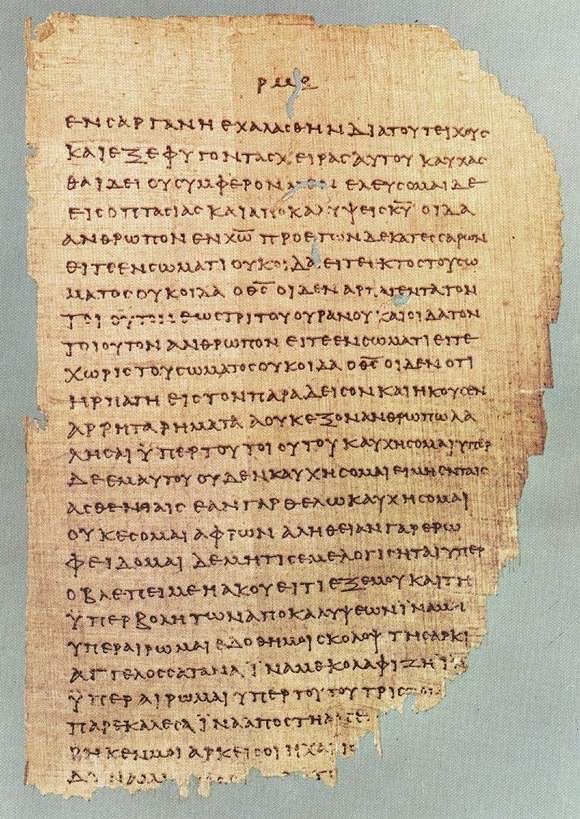 ΡΜΕ
ΕΝ ϹΑΡΓΑΝΗ ΕΧΑΛΑϹΘΗΝ ΔΙΑ ΤΟΥ ΤΕΙΧΟΥϹ
ΚΑΙ ΕΞΕΦΥΓΟΝ ΤΑϹ ΧΕΙΡΑϹ ΑΥΤΟΥ ΚΑΥΧΑϹ
ΘΑΙ ΔΕΙ ΟΥ ϹΥΜΦΕΡΟΝ ΕΛΕΥϹΟΜΑΙ ΔΕ
ΕΙϹ ΟΠΤΑϹΙΑϹ ΚΑΙ ΑΠΟΚΑΛΥΨΕΙϹ Κ̅Υ̅ ΟΙΔΑ
ΑΝΘΡΩΠΟΝ ΕΝ Χ̅Ω̅ ΠΡΟ ΕΤΩΝ ΔΕΚΑΤΕϹϹΑΡΩΝ
ΕΙΤΕ ΕΝ ϹΩΜΑΤΙ ΟΥΚ ΟΙΔΑ ΕΙΤΕ ΕΚΤΟϹ ΤΟΥ ϹΩ
ΜΑΤΟϹ ΟΥΚ ΟΙΔΑ Ο Θ̅Ϲ̅ ΟΙΔΕΝ ΑΡΠΑΓΕΝΤΑ ΤΟΝ
ΤΟΙΟΥΤΟΝ ΕΩϹ ΤΡΙΤΟΥ ΟΥΡΑΝΟΥ ΚΑΙ ΟΙΔΑ ΤΟΝ
ΤΟΙΟΥΤΟΝ ΑΝΘΡΩΠΟΝ ΕΙΤΕ ΕΝ ϹΩΜΑΤΙ ΕΙΤΕ
ΧΩΡΙϹ ΤΟΥ ϹΩΜΑΤΟϹ ΟΥΚ ΟΙΔΑ Ο Θ̅Ϲ̅ ΟΙΔΕΝ ΟΤΙ
ΗΡΠΑΓΗ ΕΙϹ ΤΟΝ ΠΑΡΑΔΕΙϹΟΝ ΚΑΙ ΗΚΟΥϹΕΝ
ΑΡΡΗΤΑ ΡΗΜΑΤΑ Α ΟΥΚ ΕΞΟΝ ΑΝΘΡΩΠΩ ΛΑ
ΛΗϹΑΙ ΫΠΕΡ ΤΟΥ ΤΟΙΟΥΤΟΥ ΚΑΥΧΗϹΟΜΑΙ ΥΠΕΡ
ΔΕ ΕΜΑΥΤΟΥ ΟΥΔΕΝ ΚΑΥΧΗϹΟΜΑΙ ΕΙ ΜΗ ΕΝ ΤΑΙϹ
ΑϹΘΕΝΕΙΑΙϹ ΕΑΝ ΓΑΡ ΘΕΛΩ ΚΑΥΧΗϹΟΜΑΙ
ΟΥΚ ΕϹΟΜΑΙ ΑΦΡΩΝ ΑΛΗΘΕΙΑΝ ΓΑΡ ΕΡΩ
ΦΕΙΔΟΜΑΙ ΔΕ ΜΗ ΤΙϹ ΕΜΕ ΛΟΓΙϹΗΤΑΙ ΥΠΕΡ
Ο ΒΛΕΠΕΙ ΜΕ Η ΑΚΟΥΕΙ ΤΙ ΕΞ ΕΜΟΥ ΚΑΙ ΤΗ
ΫΠΕΡΒΟΛΗ ΤΩΝ ΑΠΟΚΑΛΥΨΕΩΝ ΪΝΑ ΜΗ
ΥΠΕΡΑΙΡΩΜΑΙ ΕΔΟΘΗ ΜΟΙ ϹΚΟΛΟΨ ΤΗ ϹΑΡΚΙ
ΑΓΓΕΛΟϹ ϹΑΤΑΝΑ ΪΝΑ ΜΕ ΚΟΛΑΦΙΖΗ ΪΝΑ
ΫΠΕΡΑΙΡΩΜΑΙ ΥΠΕΡ ΤΟΥΤΟΥ ΤΡΙϹ
ΠΑΡΕΚΑΛΕϹΑ ΪΝΑ ΑΠΟϹΤΗ ΑΠ
ΡΗΚΕΝ ΜΟΙ ΑΡΚΕΙ ϹΟΙ Η ΧΑΡΙϹ
ΔΥΝΑΜΙϹ